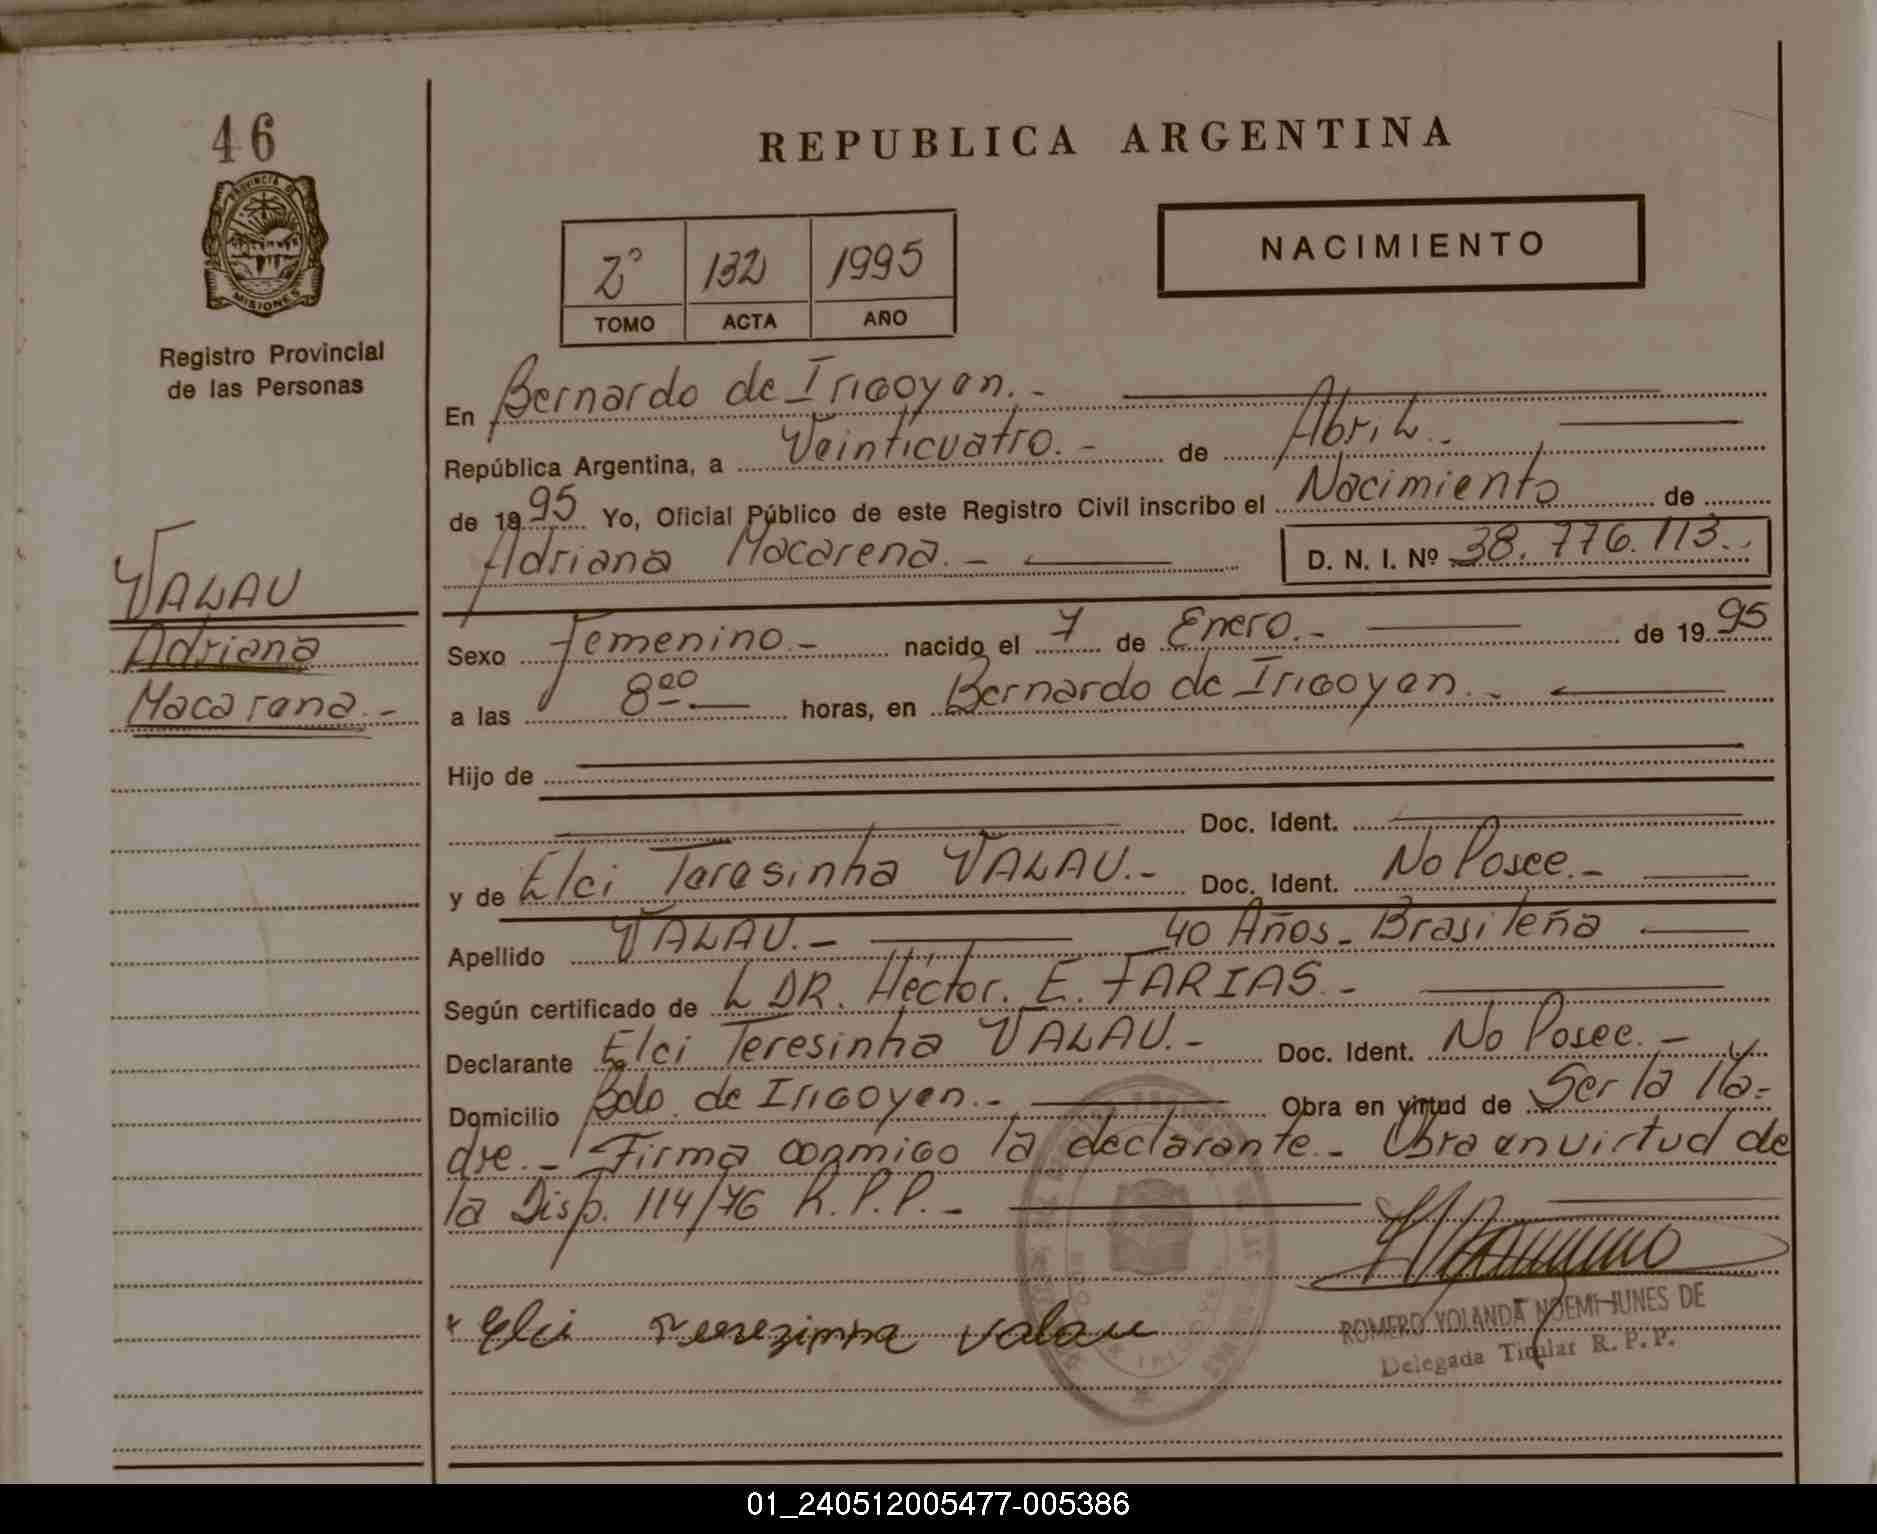 46
PROVINCIA DE
MISIONES
Registro Provincial
de las Personas
VALAU
Adriana
Macarena.-
REPUBLICA ARGENTINA
2° 132 1995
TOMO ACTA AÑO
NACIMIENTO
En Bernardo de Irigoyen.-
República Argentina, a Veinticuatro.- de Abril.-
de 1995 Yo, Oficial Público de este Registro Civil inscribo el Nacimiento de
Adriana Macarena.- D. N. I. Nº 38.776.113.-
Sexo Femenino.- nacido el 7 de Enero.- de 1995
a las 8 00.- horas, en Bernardo de Irigoyen.-
Hijo de
Doc. Ident.
y de Elci Teresinha VALAU.- Doc. Ident. No Posee.-
Apellido VALAU.- 40 Años - Brasileña
Según certificado de L DR. Héctor. E. FARIAS.-
Declarante Elci Teresinha VALAU.- Doc. Ident. No Posee.-
Domicilio Bdo. de Irigoyen.- Obra en virtud de Ser la Ma-
dre.- Firma conmigo la declarante.- Obra en virtud de
la Disp. 114/76 R.P.P.-
Elci Terezinha Valau
ROMERO YOLANDA NOEMI JUNES DE
Delegada Titular R. P. P.
01_240512005477-005386